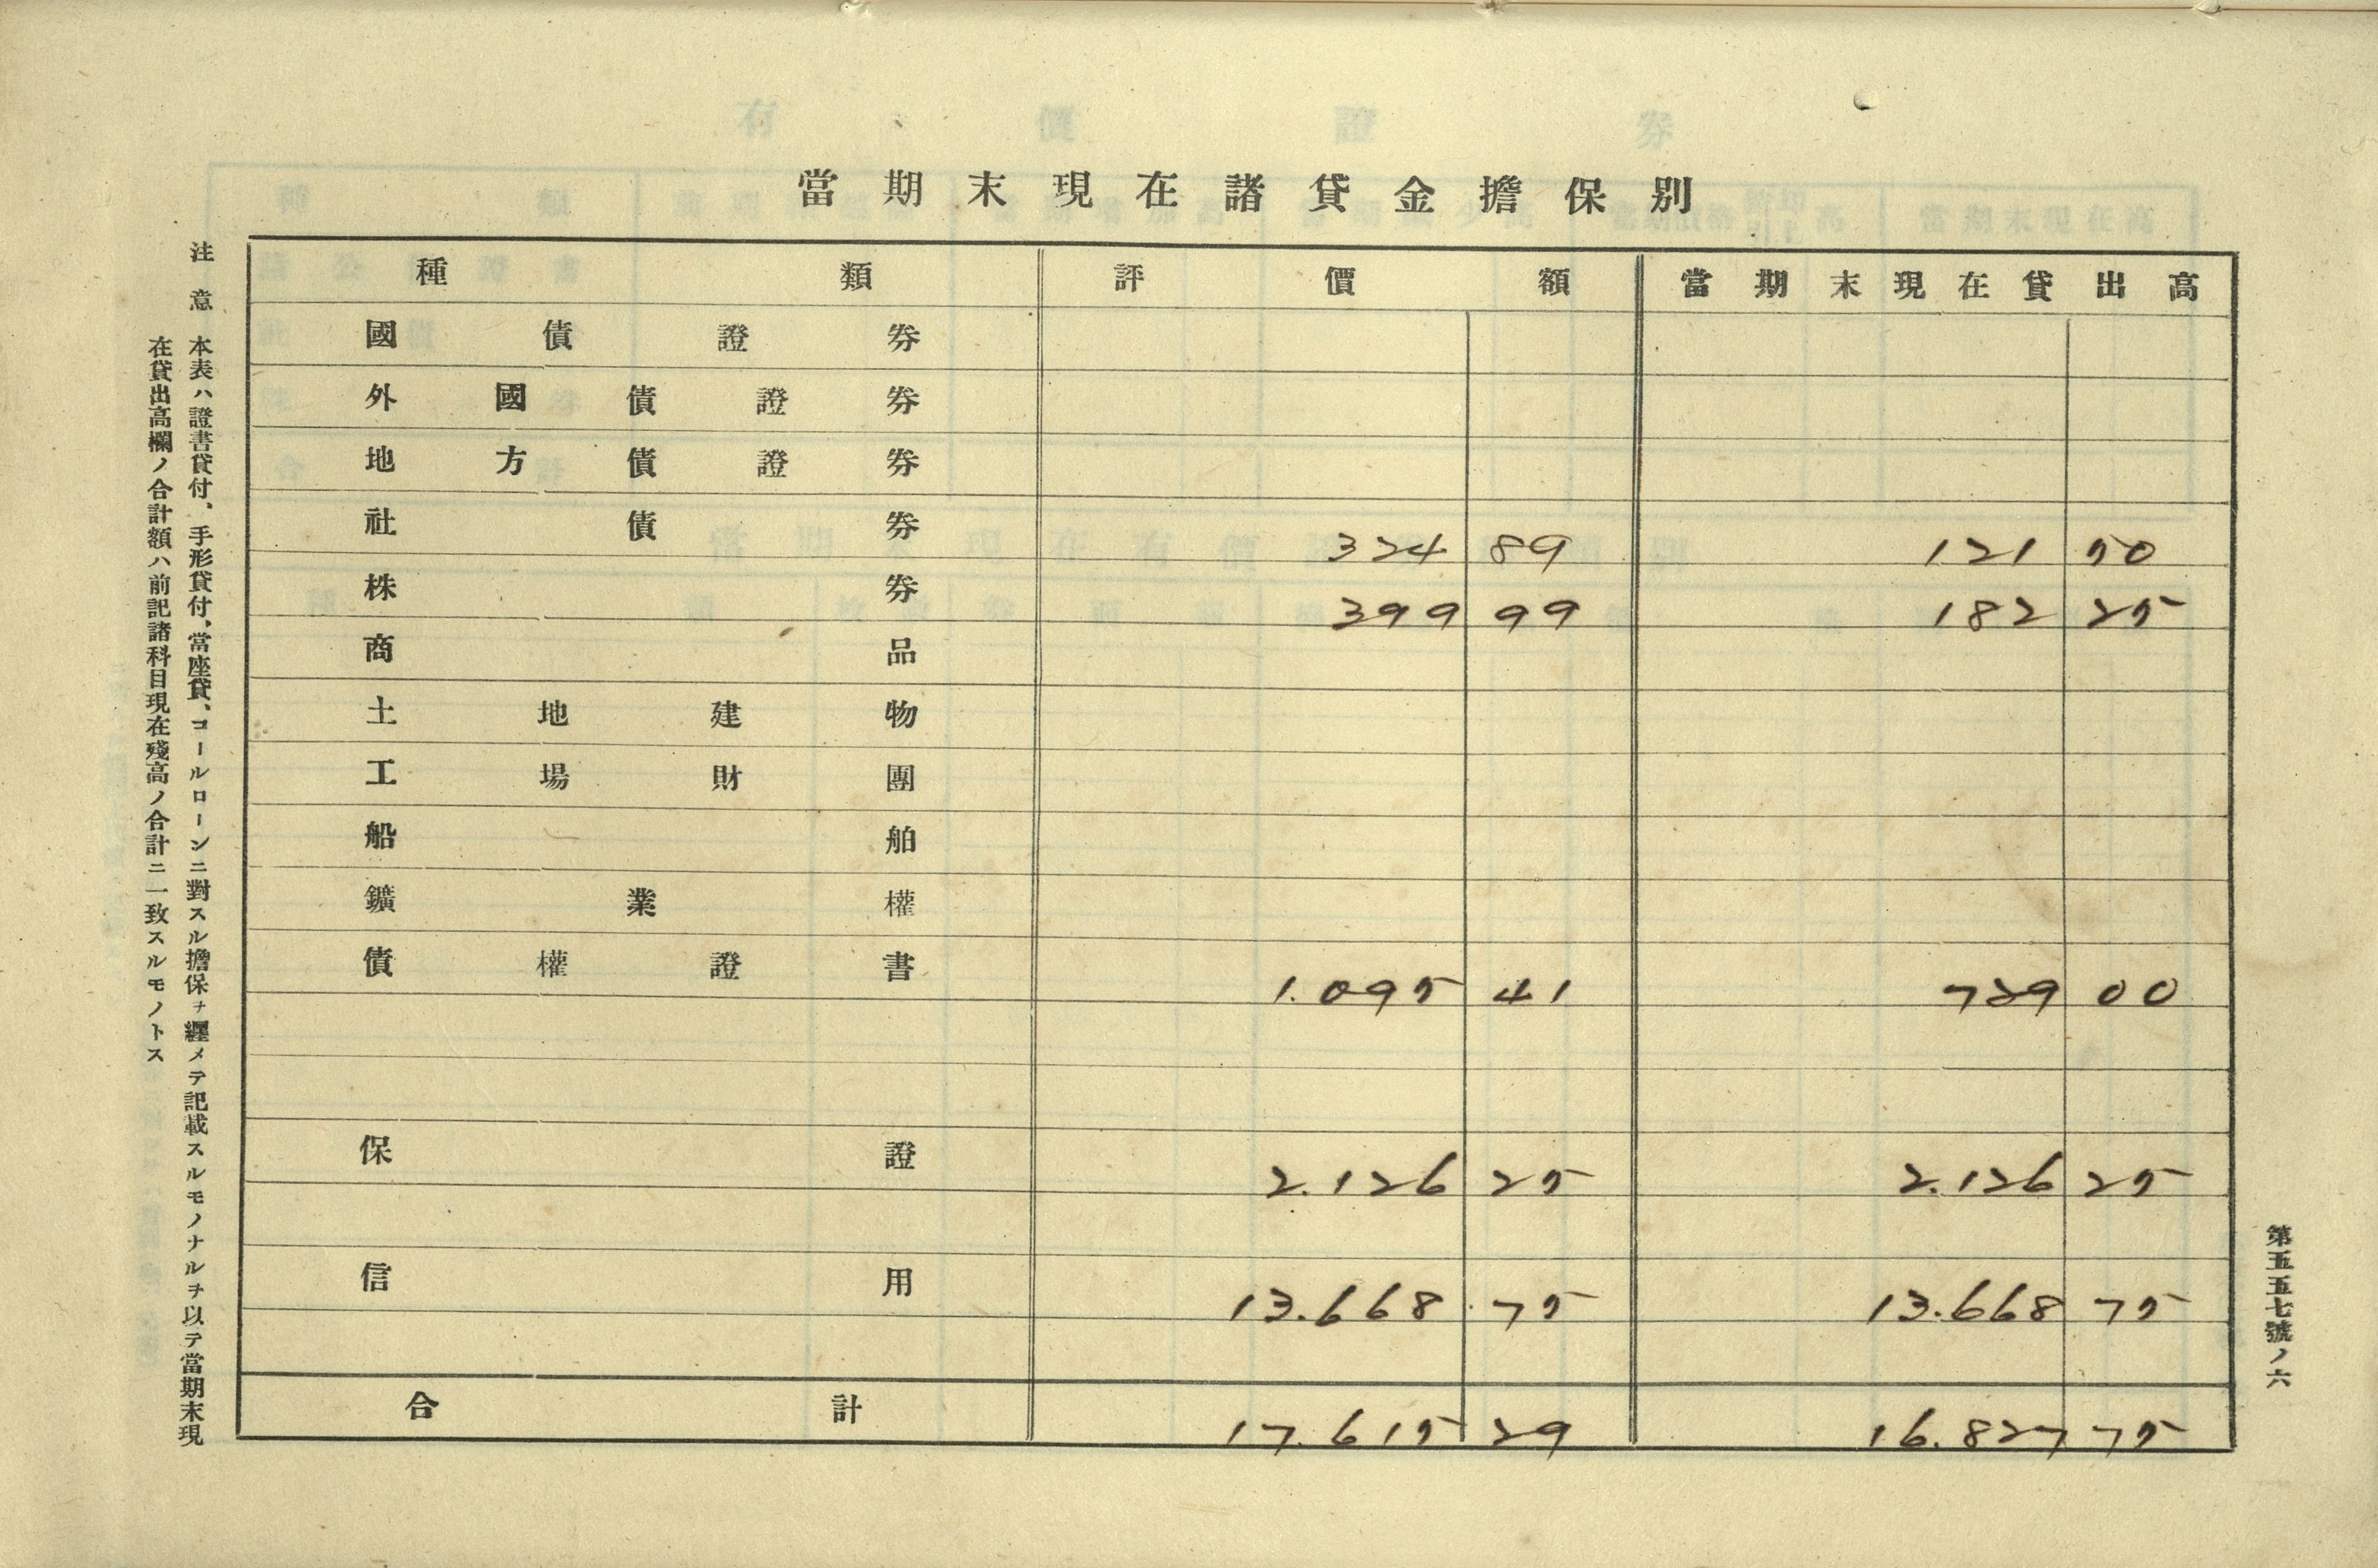 當期末現在諸貸金擔保別
種類 評價額 當期末現在貸出高
國債證券
外國債證券
地方債證券
社債券 324 89 121 50
株券 399 99 182 25
商品
土地建物
工場財團
船舶
鑛業權
債權證書 1.095 41 729 00
保證 2.126 25 2.126 25
信用 13.668 75 13.668 75
合計 17.615 29 16.827 75
注意 本表ハ證書貸付、手形貸付、當座貸、コールローンニ對スル擔保ヲ纒メテ記載スルモノナルヲ以テ當期末現
在貸出高欄ノ合計額ハ前記諸科目現在殘高ノ合計ニ一致スルモノトス
第五五七號ノ六